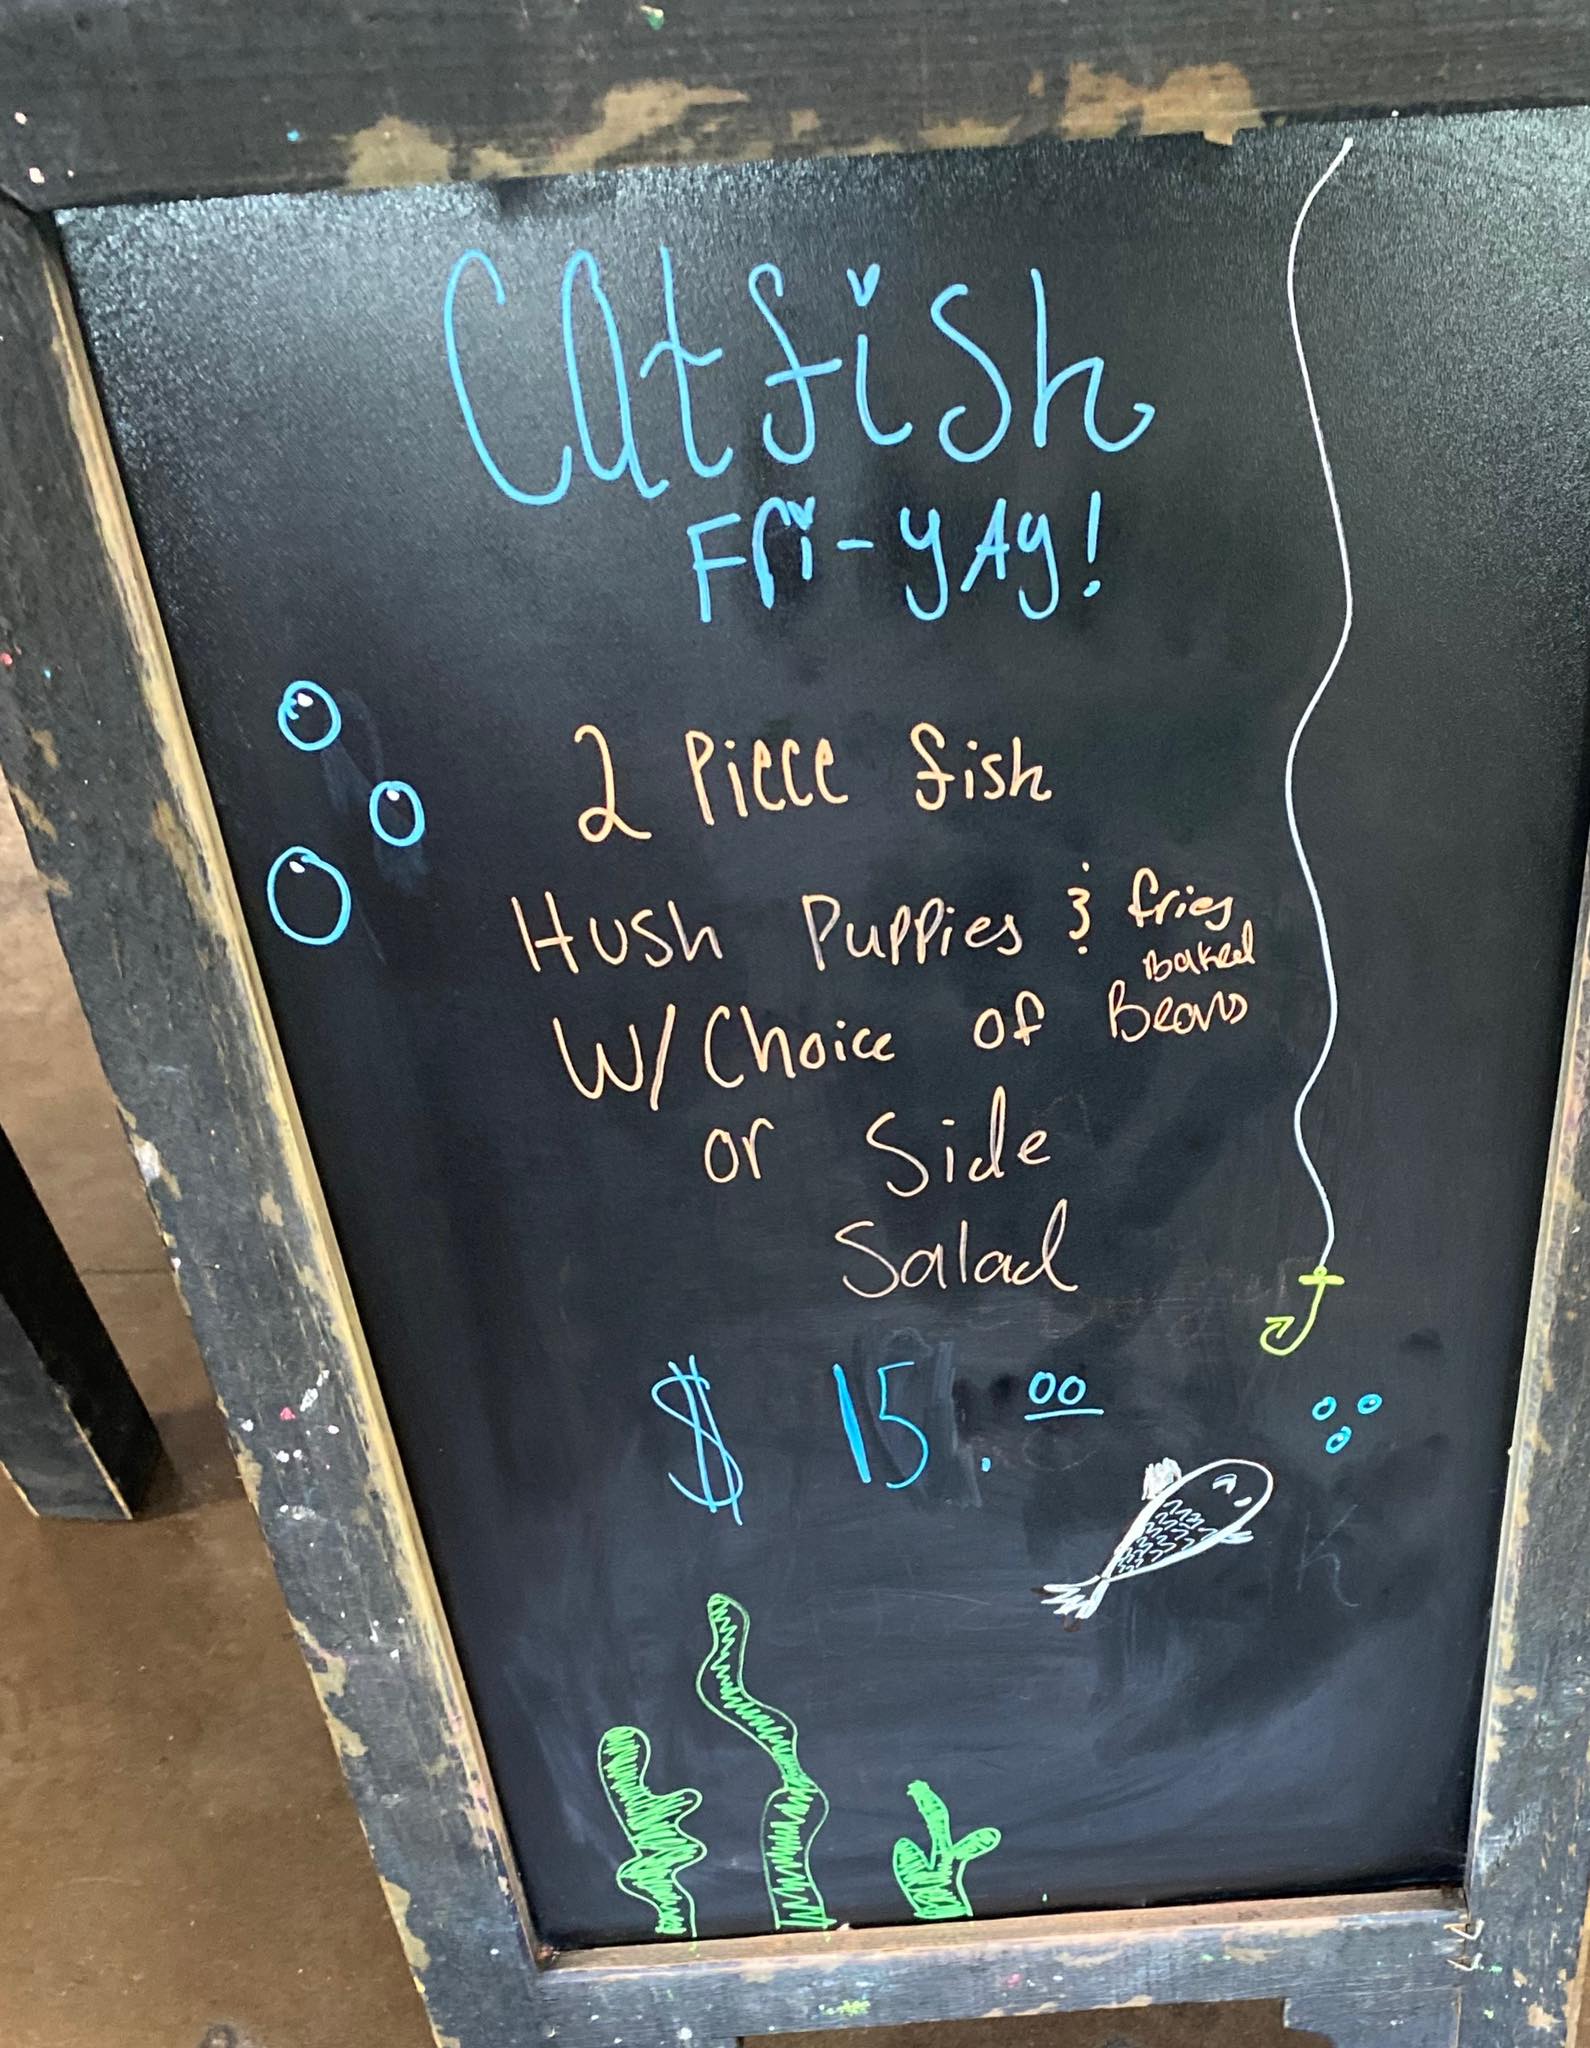 Catfish
Fri-yAy!
2 Piece fish
Hush Puppies & fries
W/Choice of Baked Beans
or Side
Salad
$ 15.00